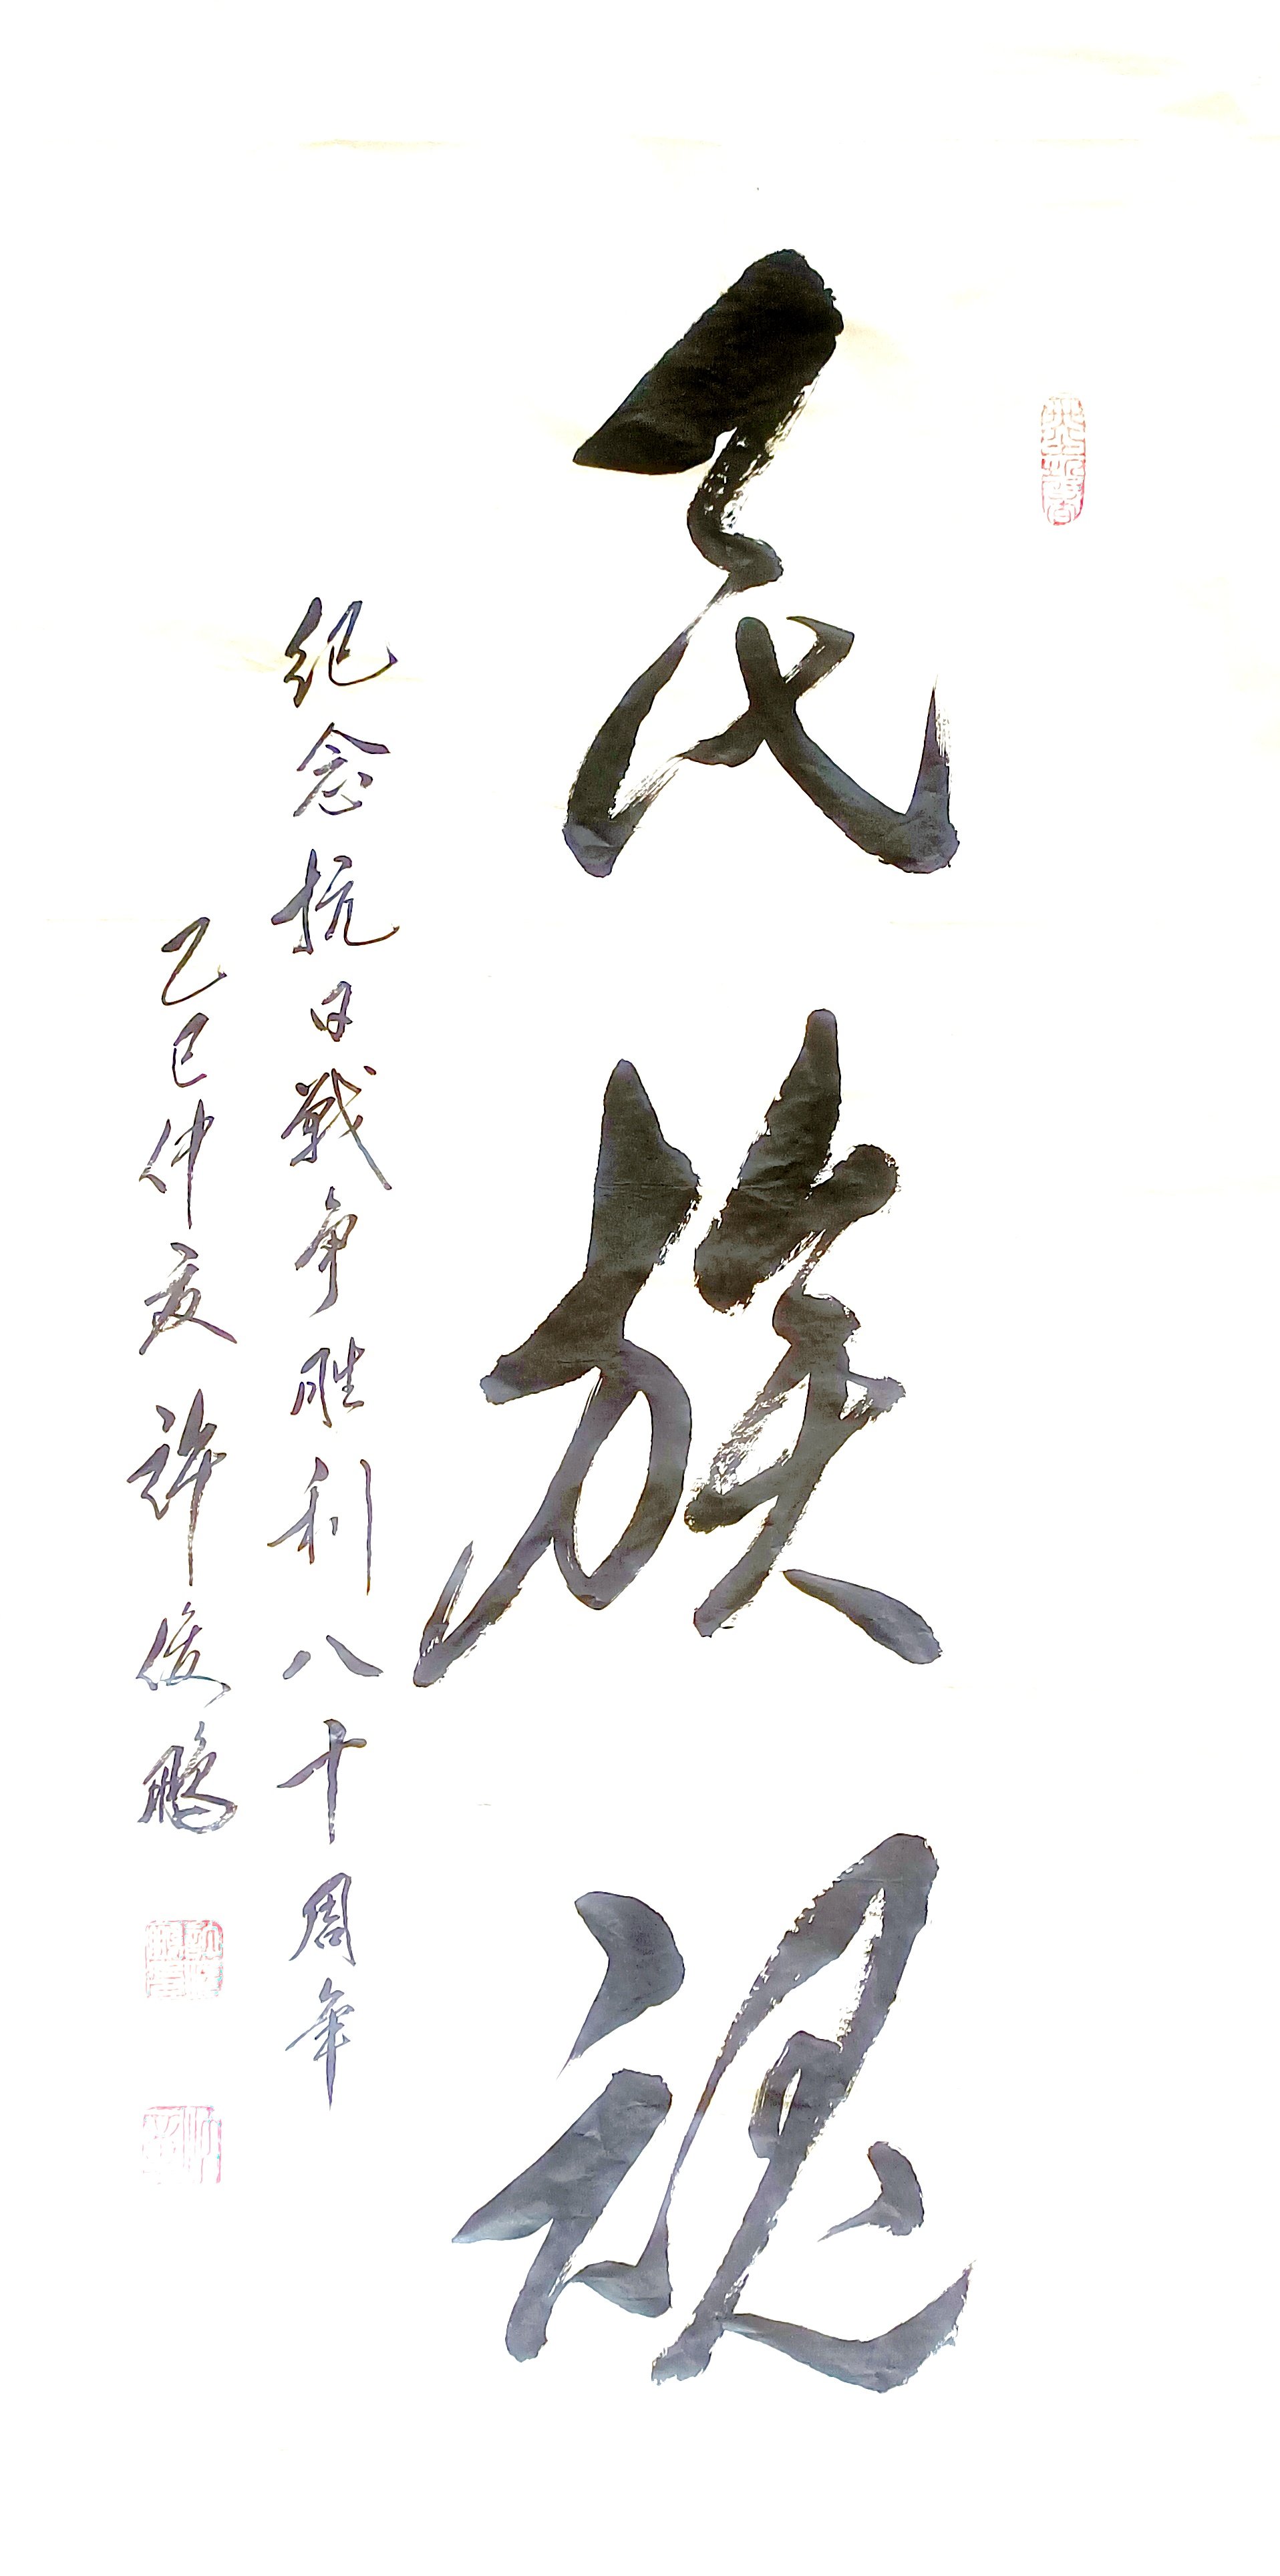 民族魂
纪念抗日戰争胜利八十周年
乙巳仲夏 许俊鹏